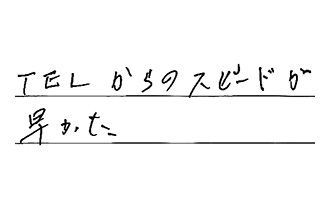 TELからのスピードが
早かった